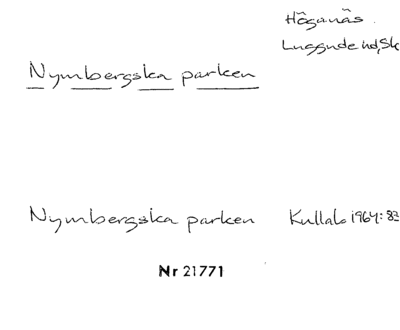 Höganäs.
Luggude hd, Sk
Nymbergska parken
Nymbergska parken Kullab 1964: 83
Nr 21771